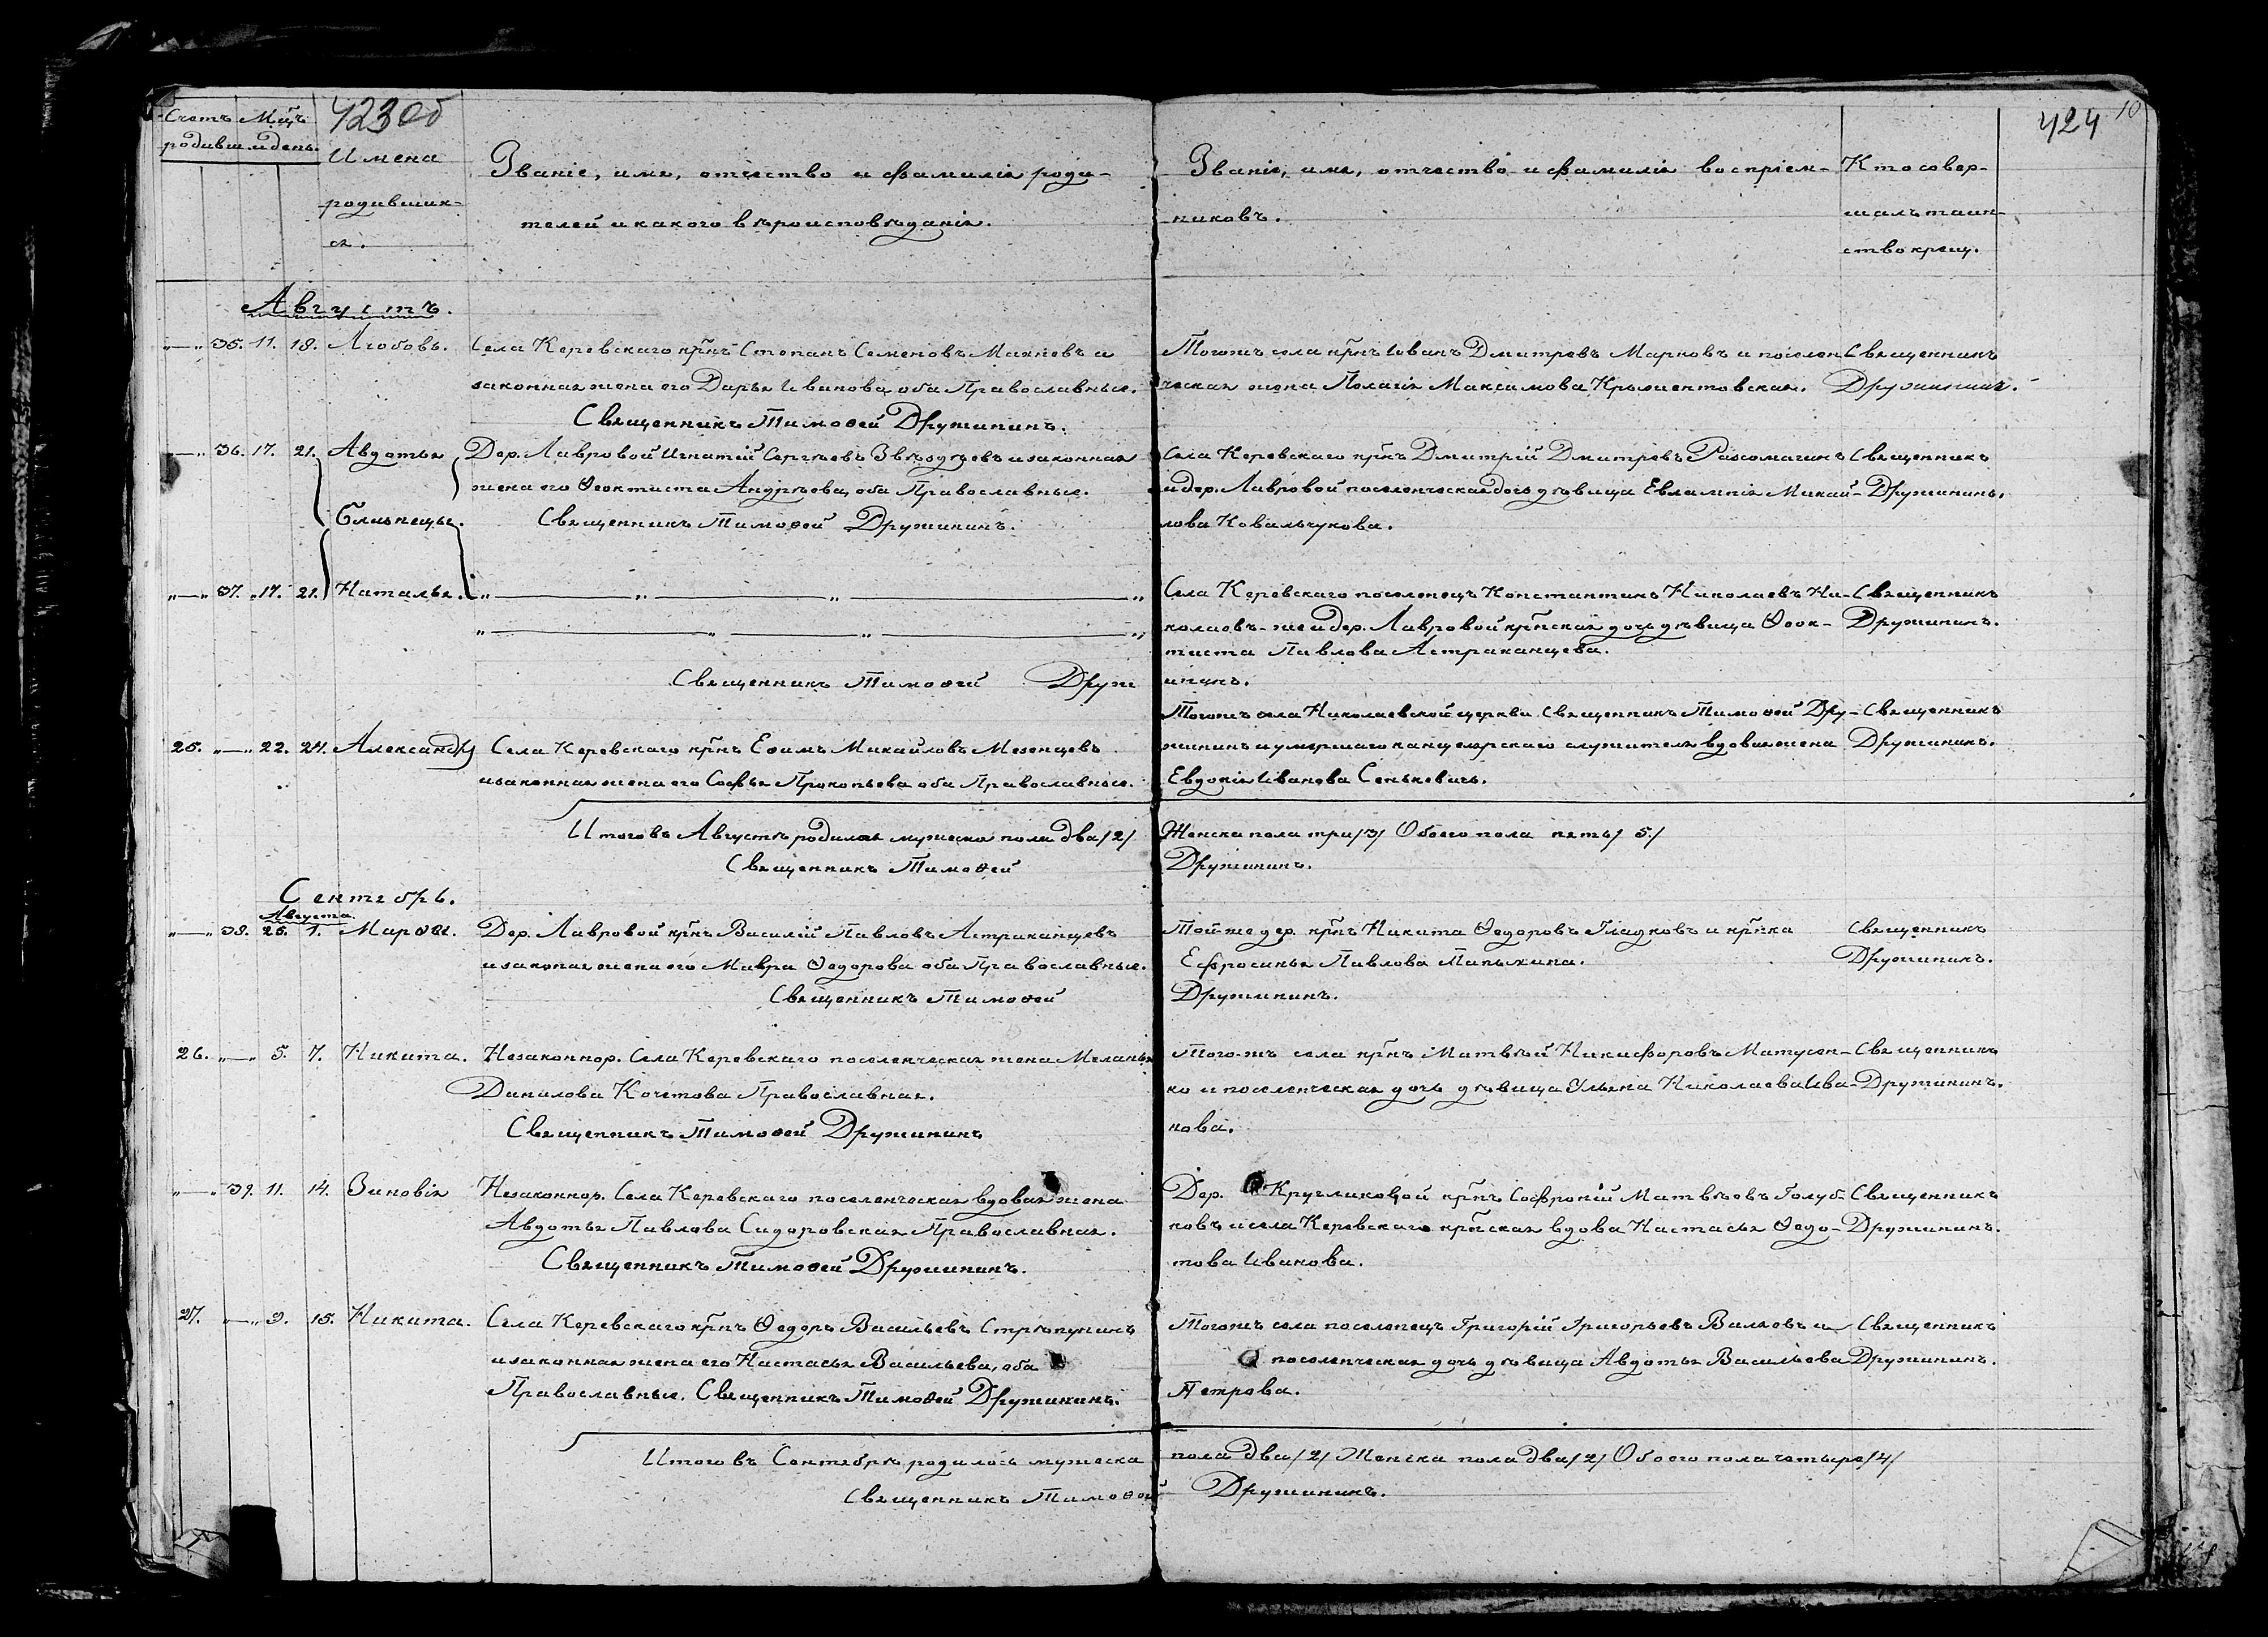 Счетъ родивш.
Мцъ и день.
423 об
Имена родившихся.
Званіе, имя, отчество и фамилія роди-
телей и какого вѣроисповѣданія.
Званіе, имя, отчество и фамилія воспріем-
никовъ.
Кто совер-
шалъ таин-
ство крещ.
424
10
Августъ.
"—" 35. 11. 18. Любовь. Села Керевскаго крнъ Степанъ Семеновъ Махневъ и
законная жена его Дарья Иванова, оба Православные.
Священникъ Тимоѳей Дружининъ.
Тогожъ села крнъ Іованъ Дмитревъ Марковъ и поселен
ческая жена Пелагія Максимова Крыжентовская.
Священникъ
Дружининъ.
"—" 36. 17. 21. Авдотья Дер. Лавровой Игнатій Сергѣевъ Звѣздѣевъ и законная
жена его Ѳеоктиста Андрѣева, оба Православные.
Близнецы. Священникъ Тимоѳей Дружининъ.
Села Керевскаго крнъ Дмитрій Дмитревъ Рассомагинъ
и дер. Лавровой поселенческая дочь дѣвица Евлампія Михай-
лова Ковальчукова.
Священникъ
Дружининъ.
"—" 37. 17. 21. Наталья. "—"—"—"
"—"—"—"
Священникъ Тимоѳей Друж
ининъ.
Села Керевскаго поселенецъ Константинъ Николаевъ Ни-
колаевъ-же и дер. Лавровой крнская дочь дѣвица Ѳеок-
тиста Павлова Астраханцева.
Священникъ
Дружининъ.
25. "—" 22. 24. Александръ Села Керевскаго крнъ Ефимъ Михайловъ Мезенцевъ
и законная жена его Софья Прокопьева оба Православные.
Тогожъ села Николаевской церкви Священникъ Тимоѳей Дру-
жининъ и умершаго канцелярскаго служителя вдовая жена
Евдокія Иванова Сенькевичъ.
Священникъ
Дружининъ.
Итого въ Августѣ родилось мужеска пола два /2/ Женска пола три /3/ Обоего пола пять /5/
Священникъ Тимоѳей Дружининъ.
Сентябрь.
Августа
"—" 38. 26. 1. Марѳа. Дер. Лавровой крнъ Василій Павловъ Астраханцевъ
и законая жена его Мавра Ѳедорова оба Православные.
Священникъ Тимоѳей Дружининъ.
Той же дер. крнъ Никита Ѳедоровъ Гладковъ и крнка
Ефросинья Павлова Папыхина.
Священникъ
Дружининъ.
26. "—" 5. 7. Никита. Незаконнор. Села Керевскаго поселенческая жена Меланья
Данилова Кочетова Православная.
Священникъ Тимоѳей Дружининъ
Того-жъ села крнъ Матвѣй Никифоровъ Матусен-
ко и поселенческая дочь дѣвица Ульяна Николаева Ива-
нова.
Священникъ
Дружининъ.
"—" 39. 11. 14. Зиновія Незаконнор. Села Керевскаго поселенческая вдовая жена
Авдотья Павлова Сидоровская Православная.
Священникъ Тимоѳей Дружининъ.
Дер. Кругликовой крнъ Софроній Матвѣевъ Голуб-
ковъ и села Керевскаго крнская вдова Настасья Ѳедо-
това Иванова.
Священникъ
Дружининъ.
27. —" 9. 15. Никита. Села Керевскаго крнъ Ѳедоръ Васильевъ Стрѣпунинъ
и законная жена его Настасья Васильева, оба
Православные. Священникъ Тимоѳей Дружининъ.
Тогожъ села поселенецъ Григорій Григорьевъ Вилковъ и
поселенческая дочь дѣвица Авдотья Васильева
Петрова.
Священникъ
Дружининъ.
Итого въ Сентябрѣ родилось мужеска пола два /2/ Женска пола два /2/ Обоего пола четыре /4/
Священникъ Тимоѳей Дружининъ.